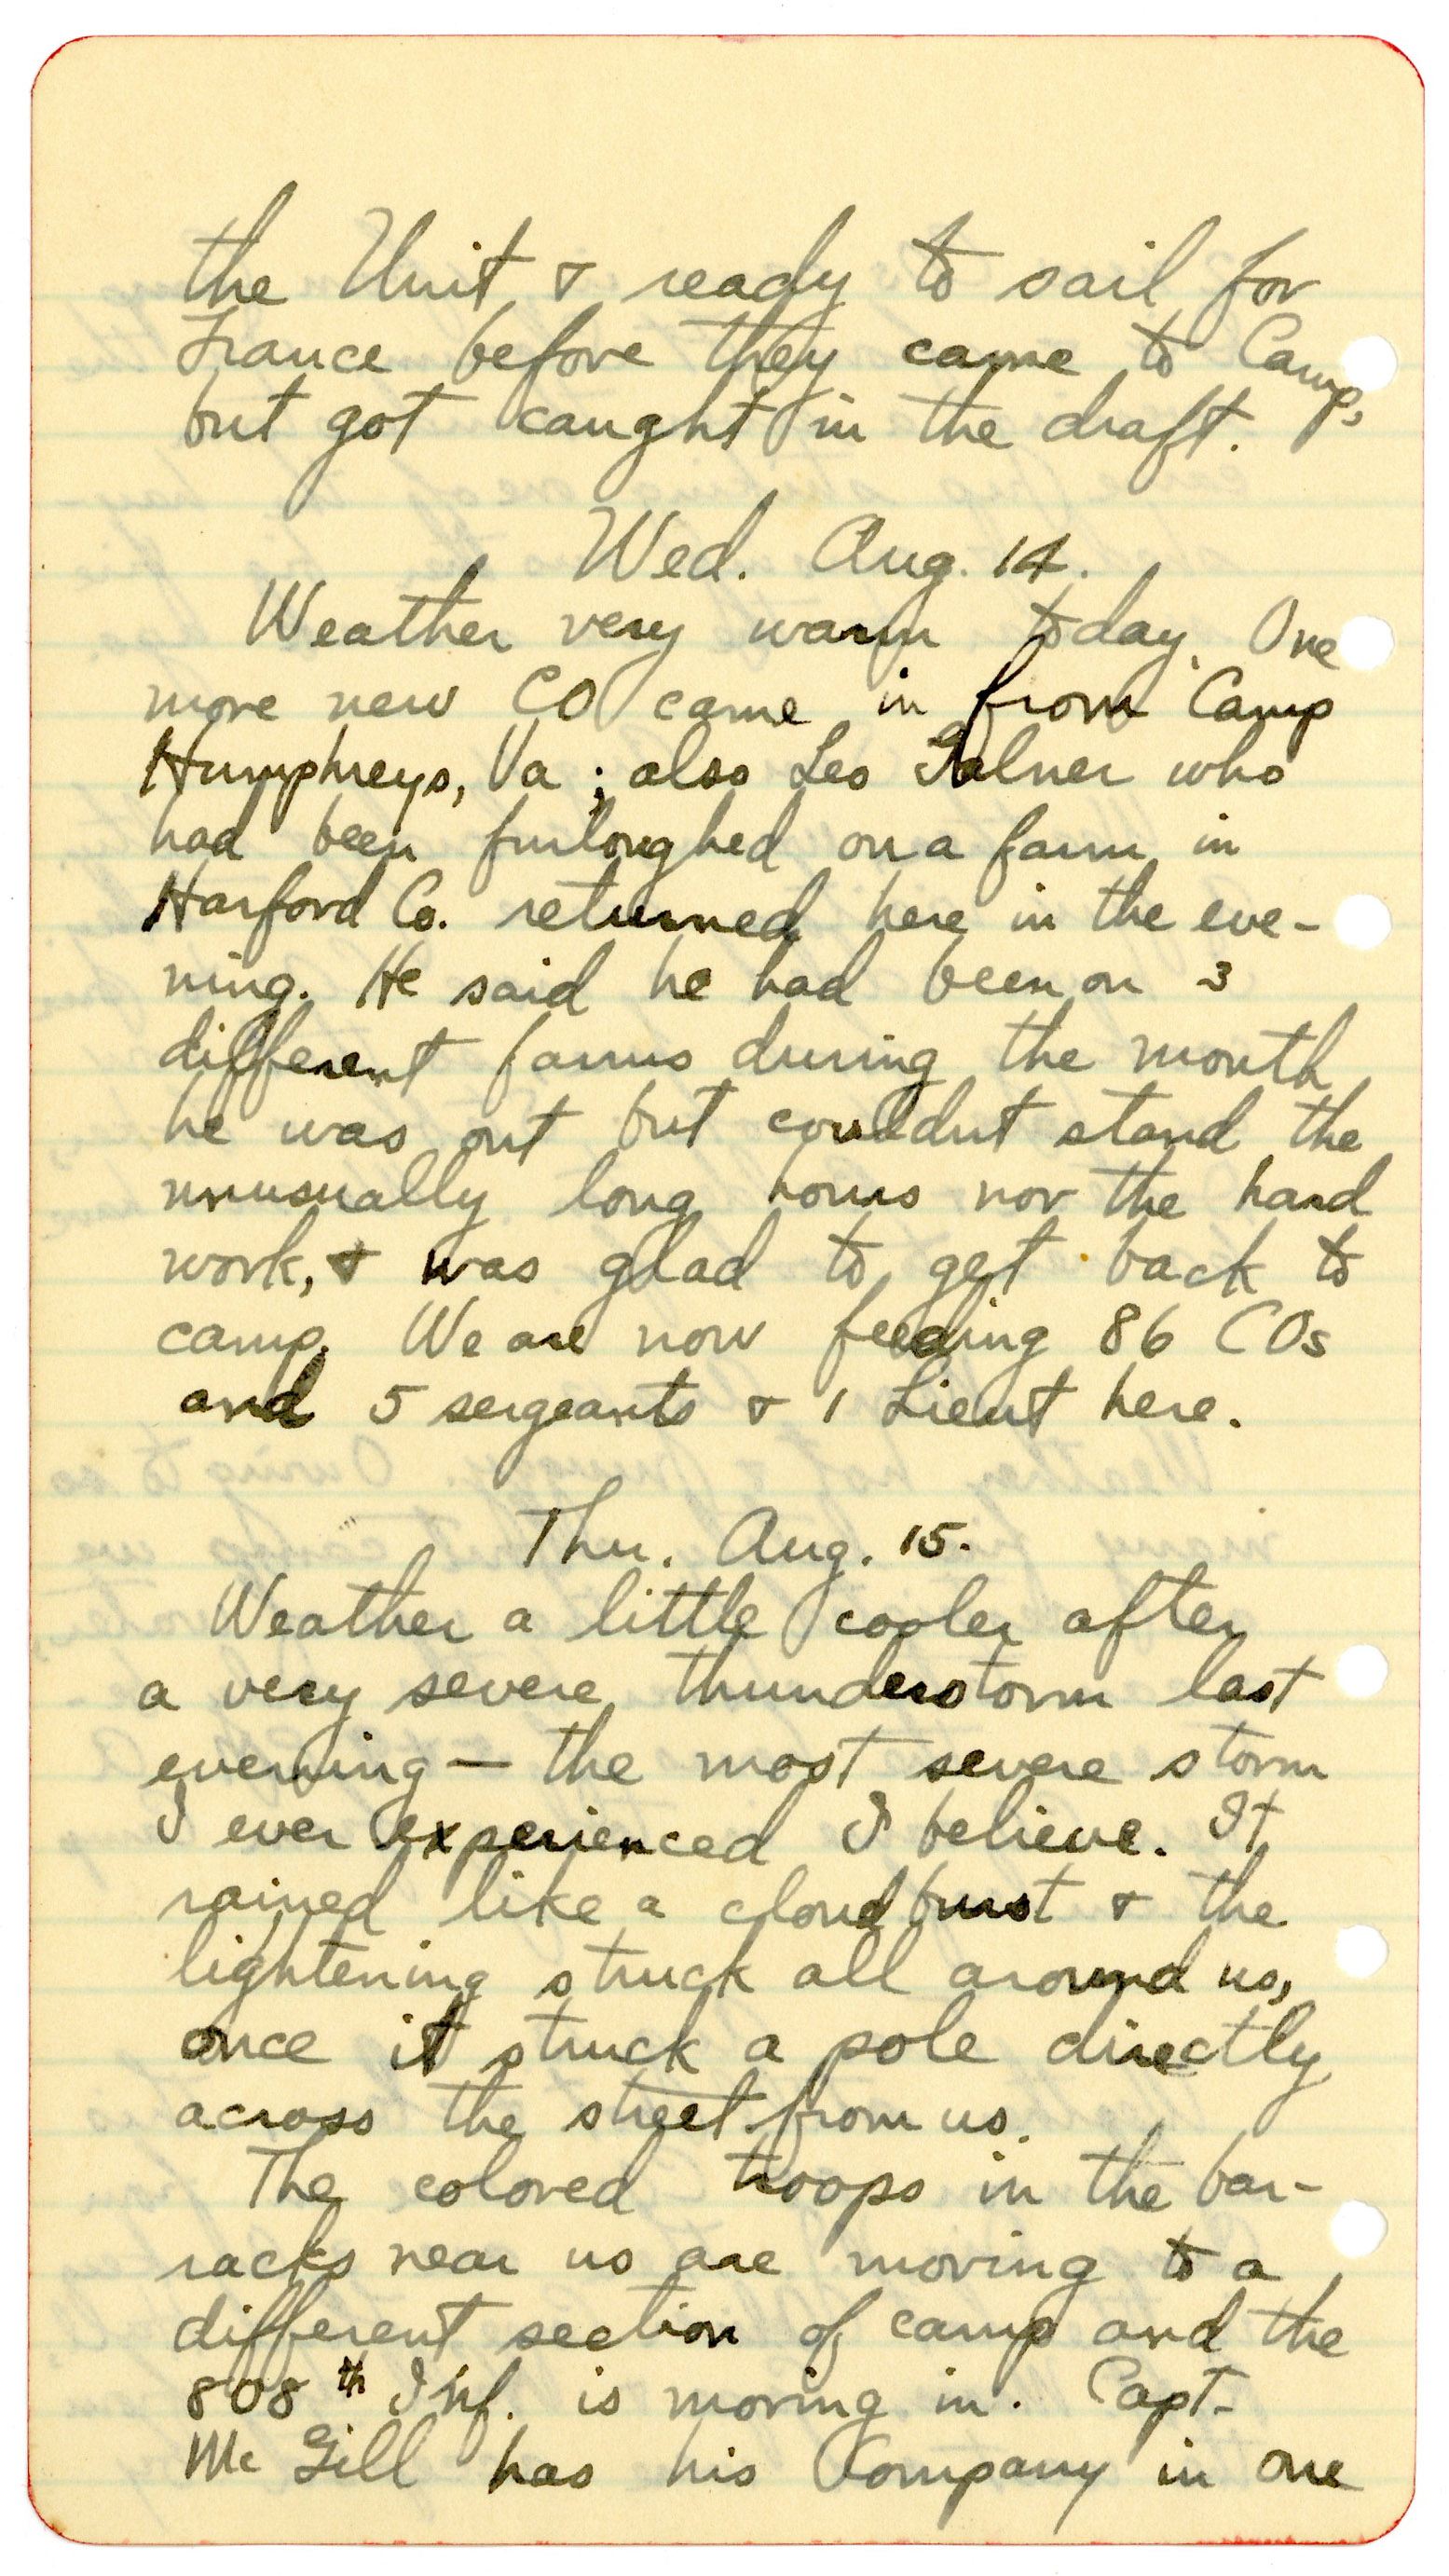 the Unit & ready to sail for
France before they came to Camp,
but got caught in the draft.
Wed. Aug. 14.
Weather very warm today. One
more new CO came in from Camp
Humphreys, Va ; also Leo who
had been furloughed on a farm in
Harford Co. returned here in the eve-
ning. He said he had been on 3
different farms during the month
he was out but couldnt stand the
unusually long hours nor the hard
work, & was glad to get back to
camp. We are now feeding 86 COs
and 5 sergeants & 1 Lieut here.
Thu. Aug. 15.
Weather a little cooler after
a very severe thunderstorm last
evening — the most severe storm
I ever experienced I believe. It
rained like a cloud burst & the
lightening struck all around us,
once it struck a pole directly
across the street from us.
The colored troops in the bar-
racks near us are moving to a
different section of camp and the
808th Inf. is moving in. Capt.
Mc Gill has his Company in one